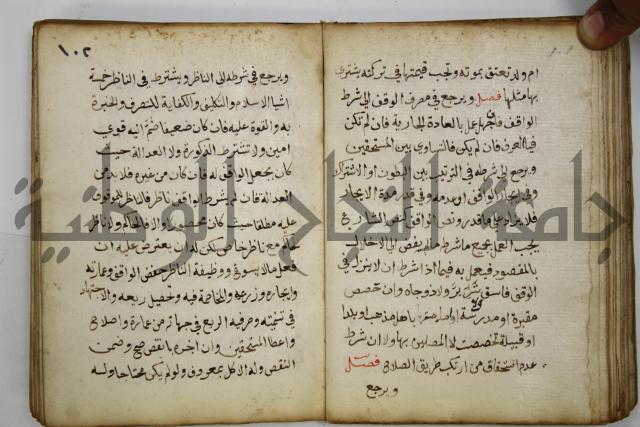 ام ولد تعتق بموته وتجب قيمتها في تركته يشترى
بها مثلها فصل ويرجع في مصرف الوقف الى شرط
الواقف فان جهل عمل بالعادة الجارية فان لم تكن
فبالعرف فان لم يكن فالتساوي بين المستحقين
ويرجع الى شرطه في الترتيب بين البطون او الاشتراك
وفي ايجار الوقف او عدمه وفي قدر مدة الايجار
فلا يزاد على ما قدر ونص الواقف كنص الشارع
يجب العمل بجميع ما شرط ما لم يفض الى الاخلال
بالمقصود فيعمل به فيما اذا شرط ان لا ينزل في
الوقف فاسق ولا شرير ولا ذو جاه وان خصص
مقبرة او مدرسة او امامتها باهل مذهب او بلد
او قبيلة تخصصت لا المصلين بها ولا ان شرط
عدم استحقاق من ارتكب طريق الصلاح فصل
ويرجع
١٠٢
ويرجع في شرطه الى الناظر ويشترط في الناظر خمسة
اشيا الاسلام والتكليف والكفاية للتصرف والخبرة
به والقوة عليه فان كان ضعيفا ضم اليه قوي
امين ولا تشترط الذكورة ولا العدالة حيث
كان بجعل الواقف له فان كان من غيره فلا بد من
العدالة فان لم يشترط الواقف ناظر فالناظر للموقوف
عليه مطلقا حيث كان محصورا والا فالحاكم ولا نظر
لحاكم مع ناظر خاص لكن له ان يعترض عليه ان
فعل ما لا يسوغ ووظيفة الناظر حفض الوقف وعمارته
وايجاره وزرعه والمخاصمة فيه وتحصيل ريعه والاجتهاد
في تنميته وصرف الريع في جهاته من عمارة واصلاح
واعطا المستحقين وان اجره بانقص صح وضمن
النقص وله الاكل بمعروف ولو لم يكن محتاجا وله
جامعة النجاح الوطنية